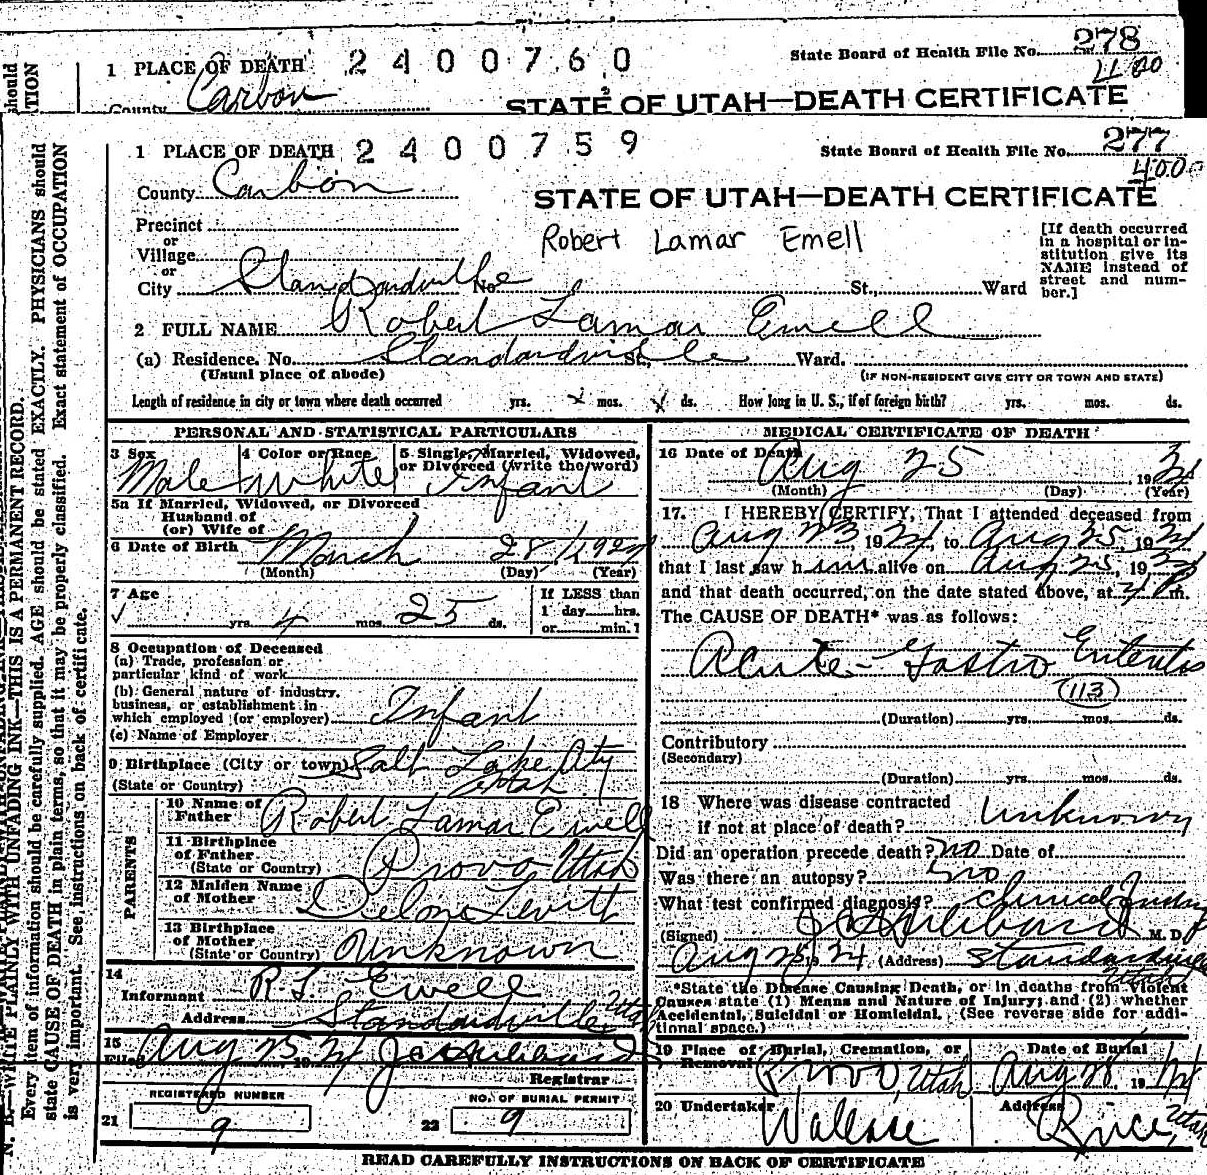 1 PLACE OF DEATH 2400760 State Board of Health File No. 278
County Carbon 4400
STATE OF UTAH—DEATH CERTIFICATE
1 PLACE OF DEATH 2400759 State Board of Health File No. 277
County Carbon 400
STATE OF UTAH—DEATH CERTIFICATE
Precinct
or
Village
or
City Standardville No. St., Ward
Robert Lamar Emell
[If death occurred
in a hospital or in-
stitution give its
NAME instead of
street and num-
ber.]
2 FULL NAME Robert Lamar Ewell
(a) Residence. No. Standardville St., Ward.
(Usual place of abode) (IF NON-RESIDENT GIVE CITY OR TOWN AND STATE)
Length of residence in city or town where death occurred yrs. x mos. x ds. How long in U. S., if of foreign birth? yrs. mos. ds.
PERSONAL AND STATISTICAL PARTICULARS
3 Sex 4 Color or Race 5 Single, Married, Widowed,
or Divorced (write the word)
Male White Infant
5a If Married, Widowed, or Divorced
Husband of
(or) Wife of
6 Date of Birth March 28, 1924
(Month) (Day) (Year)
7 Age If LESS than
yrs. 4 mos. 25 ds. 1 day hrs.
or min.?
8 Occupation of Deceased
(a) Trade, profession or
particular kind of work
(b) General nature of industry,
business, or establishment in
which employed (or employer) Infant
(c) Name of Employer
9 Birthplace (City or town) Salt Lake City
(State or Country) Utah
PARENTS
10 Name of
Father Robert Lamar Ewell
11 Birthplace
of Father
(State or Country) Provo Utah
12 Maiden Name
of Mother Levitt
13 Birthplace
of Mother
(State or Country) Unknown
14
Informant R. L. Ewell
Address Standardville Utah
15
Filed Aug 25 24
Registrar
REGISTERED NUMBER NO. OF BURIAL PERMIT
21 9 22 9
MEDICAL CERTIFICATE OF DEATH
16 Date of Death Aug 25, 1924
(Month) (Day) (Year)
17. I HEREBY CERTIFY, That I attended deceased from
Aug 23, 1924, to Aug 25, 1924
that I last saw him alive on Aug 25, 1924
and that death occurred, on the date stated above, at 4 P m.
The CAUSE OF DEATH* was as follows:
Acute Gastro Enteritis
113
(Duration) yrs. mos. ds.
Contributory
(Secondary)
(Duration) yrs. mos. ds.
18 Where was disease contracted
if not at place of death? Unknown
Did an operation precede death? no Date of
Was there an autopsy? no
What test confirmed diagnosis? Clinical
(Signed) M. D.
Aug 25, 1924 (Address) Standardville
Utah
*State the Disease Causing Death, or in deaths from Violent
Causes state (1) Means and Nature of Injury; and (2) whether
Accidental, Suicidal or Homicidal. (See reverse side for addi-
tional space.)
19 Place of Burial, Cremation, or Date of Burial
Removal Provo, Utah Aug 28 1924
20 Undertaker Address
Wallace Price, Utah
READ CAREFULLY INSTRUCTIONS ON BACK OF CERTIFICATE
N. B.—WRITE PLAINLY WITH UNFADING INK—THIS IS A PERMANENT RECORD.
Every item of information should be carefully supplied. AGE should be stated EXACTLY. PHYSICIANS should
state CAUSE OF DEATH in plain terms, so that it may be properly classified. Exact statement of OCCUPATION
is very important. See instructions on back of certificate.